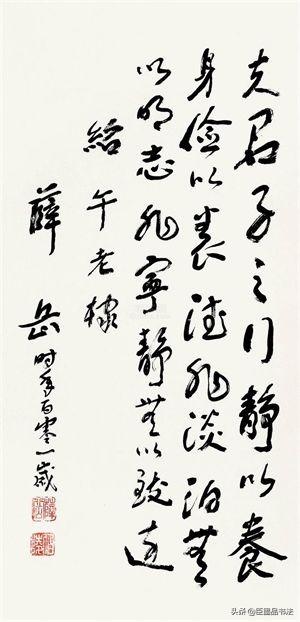 夫君子之行靜以養
身儉以養德非淡泊無
以明志非寧靜無以致遠
給午老棣
薛岳時年百零一歲
头条 @臣墨品书法